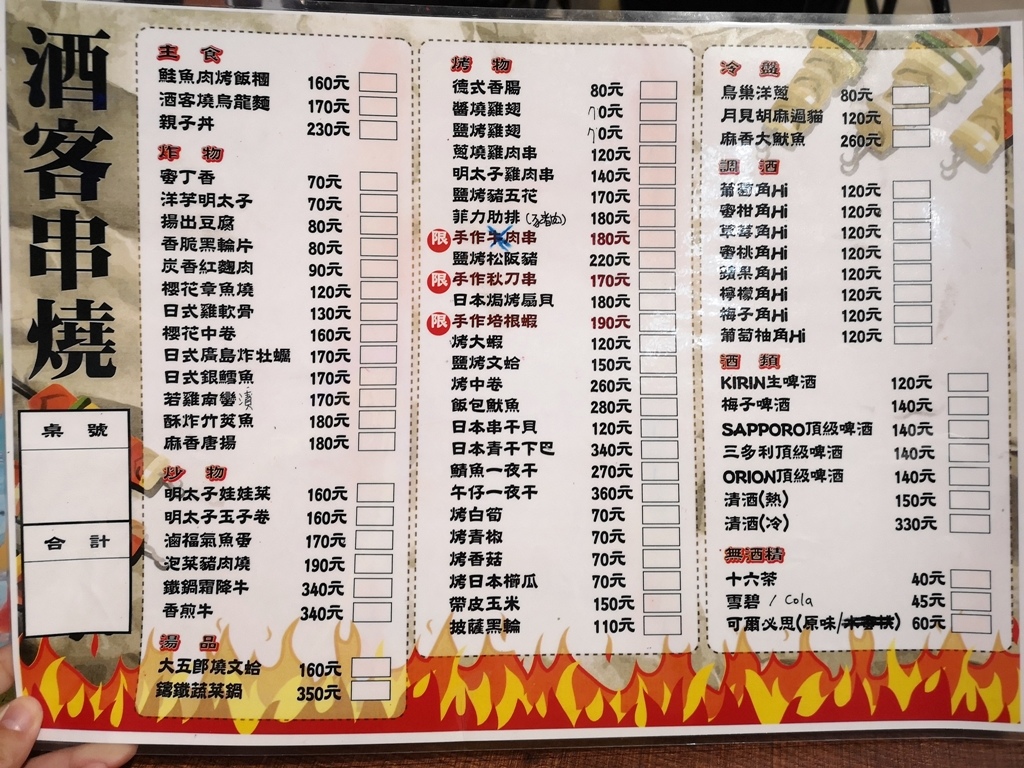 酒客串燒
桌號
合計
主食
鮭魚肉烤飯糰 160元
酒客燒烏龍麵 170元
親子丼 230元
炸物
蜜丁香 70元
洋芋明太子 70元
揚出豆腐 80元
香脆黑輪片 80元
炭香紅麴肉 90元
櫻花章魚燒 120元
日式雞軟骨 130元
櫻花中卷 160元
日式廣島炸牡蠣 170元
日式銀鱈魚 170元
若雞南蠻漬 170元
酥炸竹莢魚 180元
麻香唐揚 180元
炒物
明太子娃娃菜 160元
明太子玉子卷 160元
滷福氣魚蛋 170元
泡菜豬肉燒 190元
鐵鍋霜降牛 340元
香煎牛 340元
湯品
大五郎燒文蛤 160元
鑄鐵蔬菜鍋 350元
烤物
德式香腸 80元
醬燒雞翅 70元
鹽烤雞翅 70元
蔥燒雞肉串 120元
明太子雞肉串 140元
鹽烤豬五花 170元
菲力肋排 180元
限 手作牛肉串 180元
鹽烤松阪豬 220元
限 手作秋刀串 170元
日本焗烤扇貝 180元
限 手作培根蝦 190元
烤大蝦 120元
鹽烤文蛤 150元
烤中卷 260元
飯包魷魚 280元
日本串干貝 120元
日本青干下巴 340元
鯖魚一夜干 270元
午仔一夜干 360元
烤白筍 70元
烤青椒 70元
烤香菇 70元
烤日本櫛瓜 70元
帶皮玉米 150元
披薩黑輪 110元
冷盤
鳥巢洋蔥 80元
月見胡麻過貓 120元
麻香大魷魚 260元
調酒
葡萄角Hi 120元
蜜柑角Hi 120元
草莓角Hi 120元
蜜桃角Hi 120元
蘋果角Hi 120元
檸檬角Hi 120元
梅子角Hi 120元
葡萄柚角Hi 120元
酒類
KIRIN生啤酒 120元
梅子啤酒 140元
SAPPORO頂級啤酒 140元
三多利頂級啤酒 140元
ORION頂級啤酒 140元
清酒(熱) 150元
清酒(冷) 330元
無酒精
十六茶 40元
雪碧 / Cola 45元
可爾必思(原味/水蜜桃) 60元